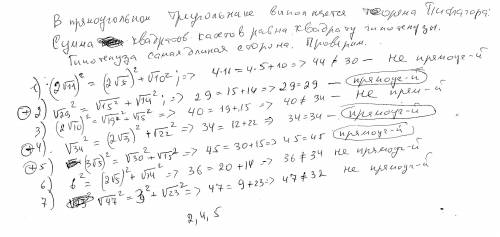 В прямоугольном треугольнике выполняется теорема Пифагора:
Сумма квадратов катетов равна квадрату гипотенузы.
Гипотенуза самая длинная сторона. Проверим.
1) (2√11)² = (2√5)² + √10² ; => 4·11 = 4·5 + 10 => 44 ≠ 30 – не прямоуг-й
+2) √29² = √15² + √14² ; => 29 = 15 + 14 => 29 = 29 – прямоуг-й
3) (2√10)² = √19² + √15² => 40 = 19 + 15 => 40 ≠ 34 – не прям-й
+4) √34² = (2√3)² + √22² => 34 = 12 + 22 => 34 = 34 – прямоуг-й
+5) (3√5)² = √30² + √15² => 45 = 30 + 15 => 45 = 45 – прямоуг-й
6) 6² = (2√5)² + √14² => 36 = 20 + 14 => 36 ≠ 34 не прямоуг-й
7) √47² = 3² + √23² => 47 = 9 + 23 => 47 ≠ 32 не прямоуг-й
2, 4, 5